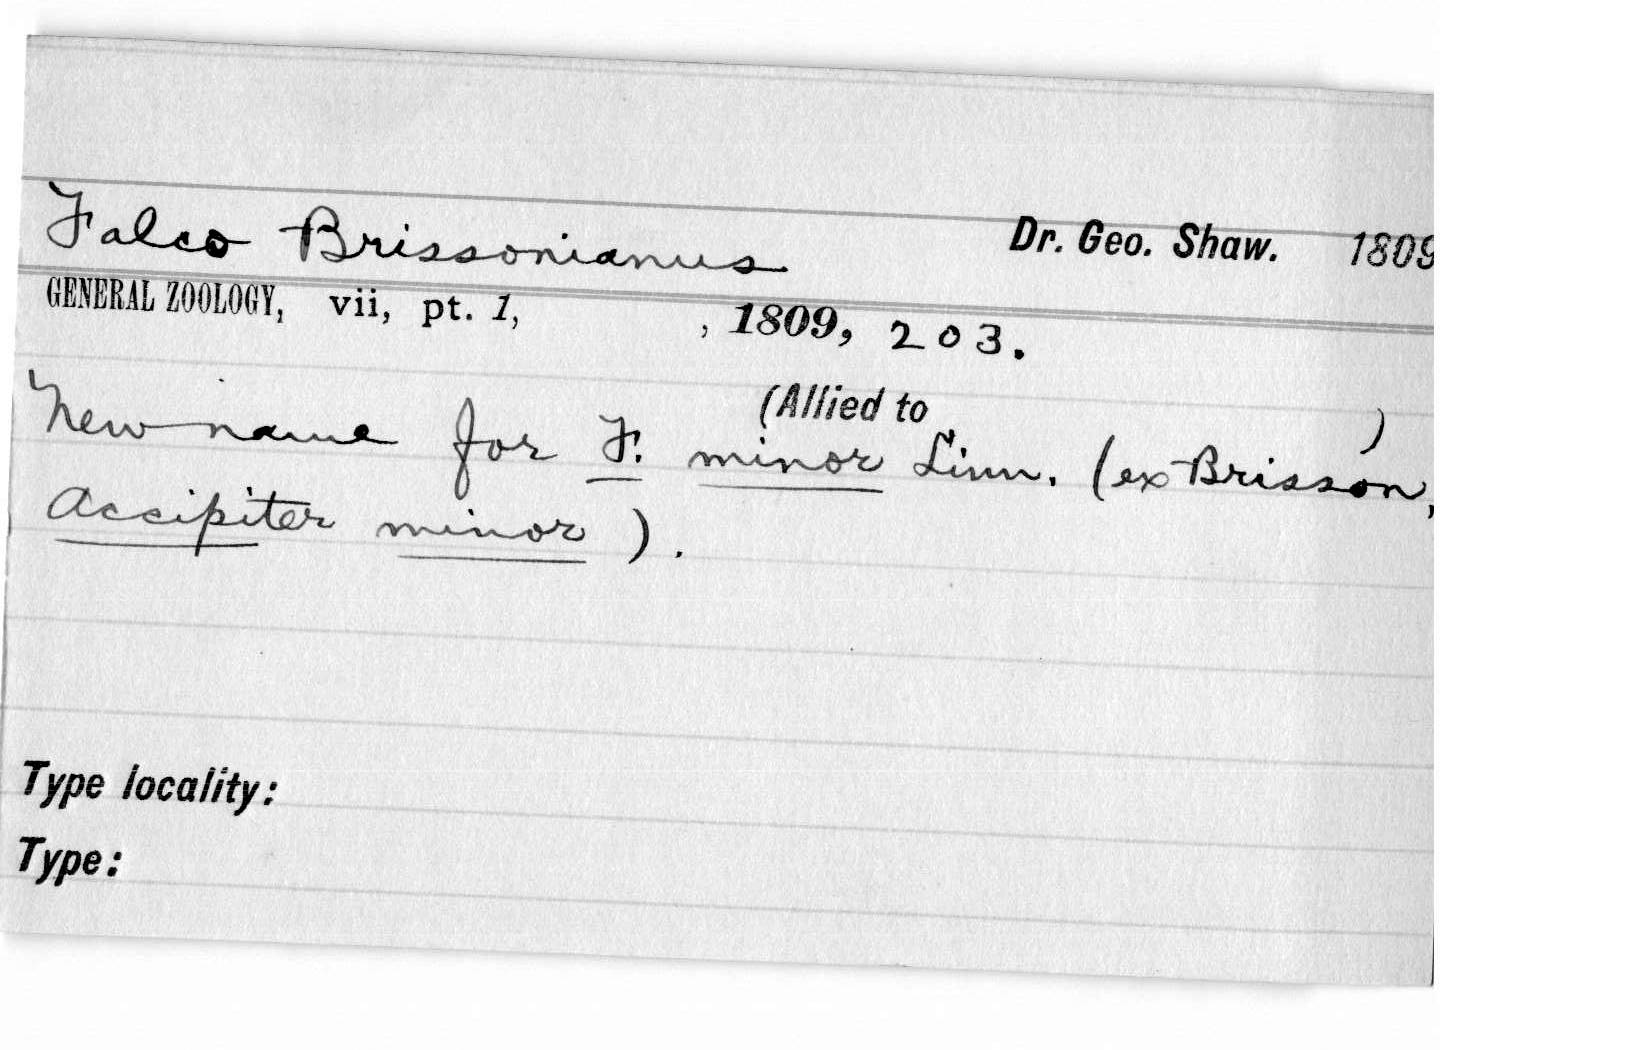 Falco Brissonianus Dr. Geo. Shaw. 1809
GENERAL ZOOLOGY, vii, pt. 1, , 1809, 203.
(Allied to )
New name for F. minor Linn. (ex Brisson,
Accipiter minor).
Type locality:
Type: